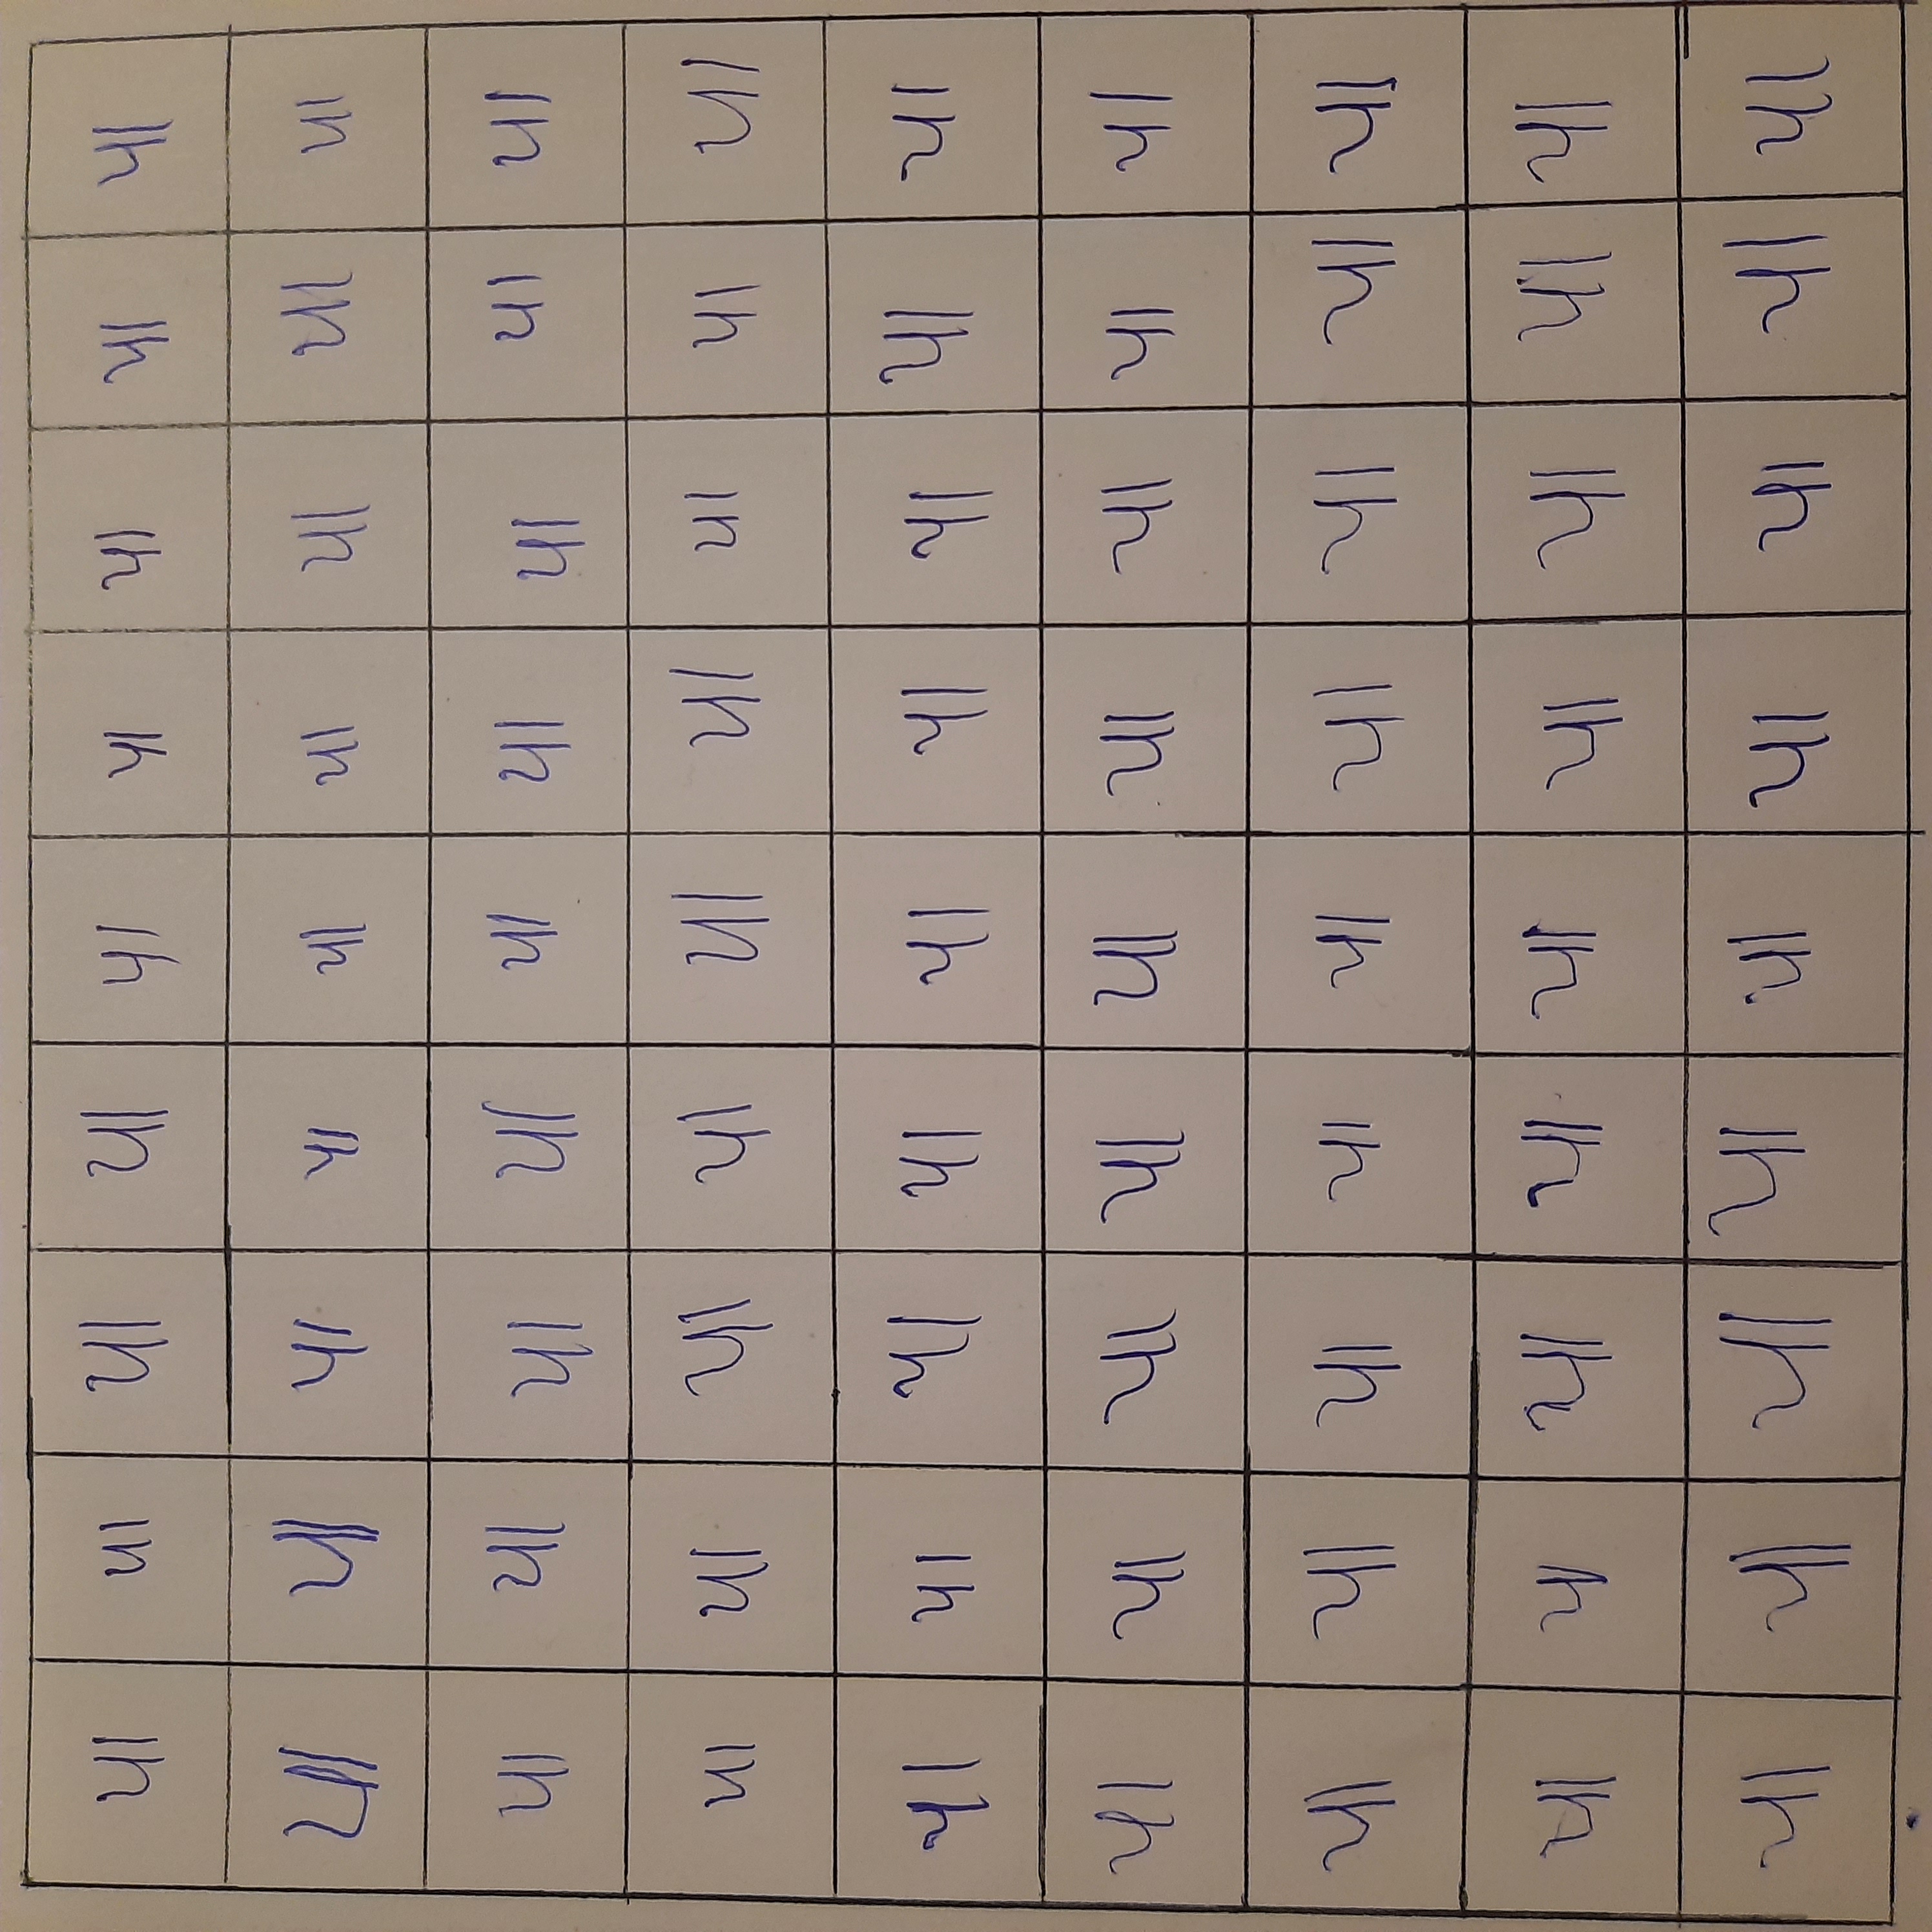 પા પા પા પા પા પા પા પા પા
પા પા પા પા પા પા પા પા પા
પા પા પા પા પા પા પા પા પા
પા પા પા પા પા પા પા પા પા
પા પા પા પા પા પા પા પા પા
પા પા પા પા પા પા પા પા પા
પા પા પા પા પા પા પા પા પા
પા પા પા પા પા પા પા પા પા
પા પા પા પા પા પા પા પા પા